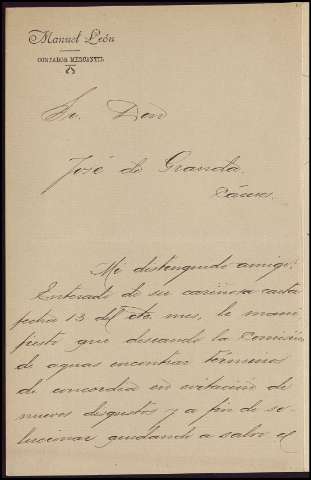 Manuel León
CONTADOR MERCANTIL
Sr. Don
José de Granda.
Cáceres.
Mi distinguido amigo:
Enterado de su cariñosa carta
fecha 13 del cte. mes, le mani
fiesto que deseando la Comisión
de aguas encontrar términos
de concordia en evitación de
nuevos disgustos y a fin de so-
lucionar quedando a salvo el